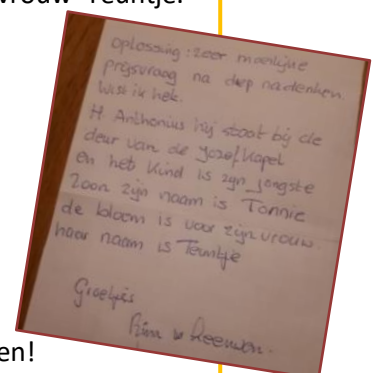 vrouw Teuntje.
Oplossing: zeer moeilijke
prijsvraag na diep nadenken.
Wist ik het.
H. Anthonius hij staat bij de
deur van de Jozefkapel
en het kind is zijn jongste
zoon zijn naam is Tonnie
de bloem is voor zijn vrouw.
haar naam is Teuntje
Groetjes
v Leeuwen.
en!